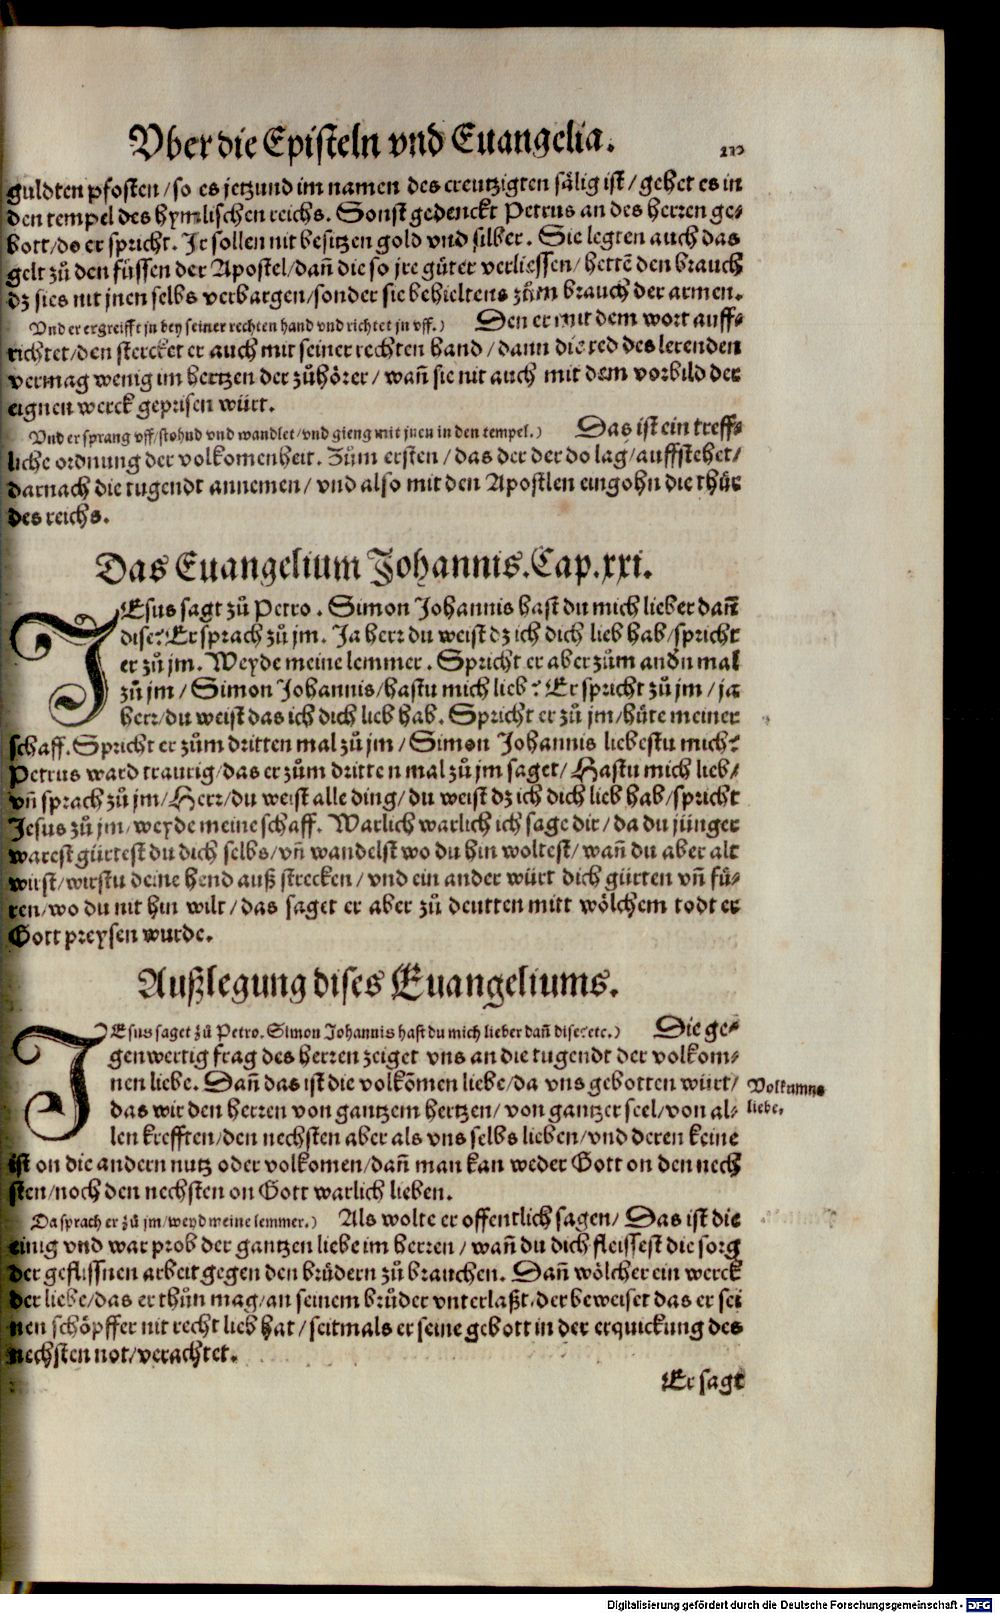 Vber die Episteln vnd Euangelia.
guldten pfosten/so es jetzund im namen des creutzigten sälig ist/gehet es in
den tempel des hymlischen reichs. Sonst gedenckt Petrus an des herren ge⸗
bott/do er spricht. Ir sollen nit besitzen gold vnd silber. Sie legten auch das
gelt zů den füssen der Apostel/dañ die so jre güter verliessen/hettẽ den brauch
dz sies nit jnen selbs verbargen/sonder sie behieltens zům brauch der armen.
Vnd er ergreifft jn bey seiner rechten hand vnd richtet jn vff.) Den er mit dem wort auff⸗
richtet/den stercket er auch mit seiner rechten hand/dann die red des lerenden
vermag wenig im hertzen der zůhörer/wañ sie nit auch mit dem vorbild der
eignen werck geprisen würt.
Vnd er sprang vff/stohnd vnd wandlet/vnd gieng mit jnen in den tempel.) Das ist ein treff⸗
liche ordnung der volkomenheit. Zům ersten/das der der do lag/auffstehet/
darnach die tugendt annemen/vnd also mit den Apostlen eingohn die thür
des reichs.
Das Euangelium Johannis. Cap. xxi.
JEsus sagt zů Petro. Simon Johannis hast du mich lieber dañ
dise? Er sprach zů jm. Ja herr du weist dz ich dich lieb hab/spricht
er zů jm. Weyde meine lemmer. Spricht er aber zům andn mal
zů jm/Simon Johannis/hastu mich lieb? Er spricht zů jm/ja
herr/du weist das ich dich lieb hab. Spricht er zů jm/hüte meiner
schaff. Spricht er zům dritten mal zů jm/Simon Johannis liebestu mich?
Petrus ward traurig/das er zům dritten mal zů jm saget/Hastu mich lieb/
vñ sprach zů jm/Herr/du weist alle ding/du weist dz ich dich lieb hab/spricht
Jesus zů jm/weyde meine schaff. Warlich warlich ich sage dir/da du jünger
warest gürtest du dich selbs/vñ wandelst wo du hin woltest/wañ du aber alt
wirst/wirstu deine hend auß strecken/vnd ein ander würt dich gürten vñ fü⸗
ren/wo du nit hin wilt/das saget er aber zů deutten mitt wölchem todt er
Gott preysen wurde.
Außlegung dises Euangeliums.
JEsus saget zů Petro. Simon Johannis hast du mich lieber dañ dise? etc.) Die ge⸗
genwertig frag des herren zeiget vns an die tugendt der volkom⸗
nen liebe. Dañ das ist die volkõmen liebe/da vns gebotten würt/
das wir den herren von gantzem hertzen/von gantzer seel/von al⸗
len krefften/den nechsten aber als vns selbs lieben/vnd deren keine
ist on die andern nutz oder volkomen/dañ man kan weder Gott on den nech
sten/noch den nechsten on Gott warlich lieben.
Volkumne
liebe.
Da sprach er zů jm/weyd meine lemmer.) Als wolte er offentlich sagen/Das ist die
einig vnd war prob der gantzen liebe im herren/wañ du dich fleissest die sorg
der geflissnen arbeit gegen den brüdern zů brauchen. Dañ wölcher ein werck
der liebe/das er thůn mag/an seinem brůder vnterlaßt/der beweiset das er sei
nen schöpffer nit recht lieb hat/seitmals er seine gebott in der erquickung des
nechsten not/verachtet.
Er sagt
Digitalisierung gefördert durch die Deutsche Forschungsgemeinschaft - DFG